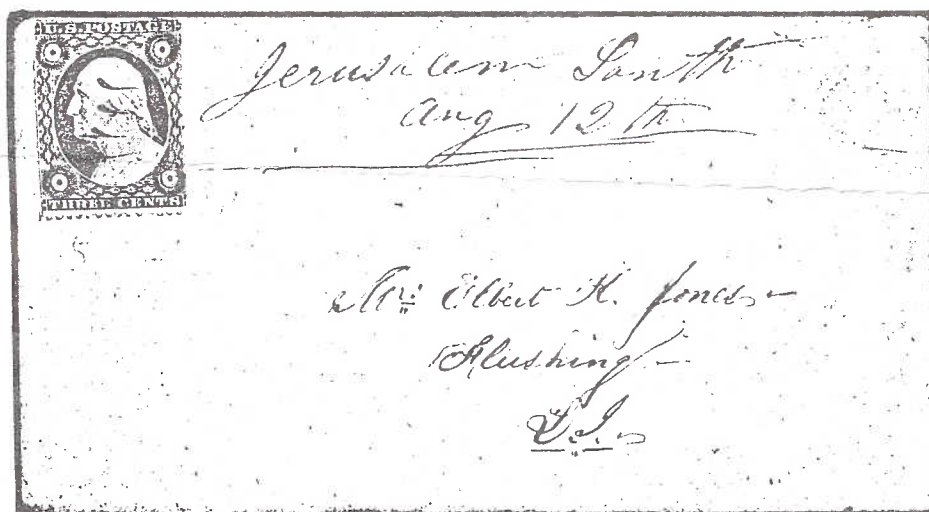 U.S. POSTAGE
THREE CENTS
Jerusalem South
Aug 12th
Mr. Elbert H. Jones
Flushing
L.I.